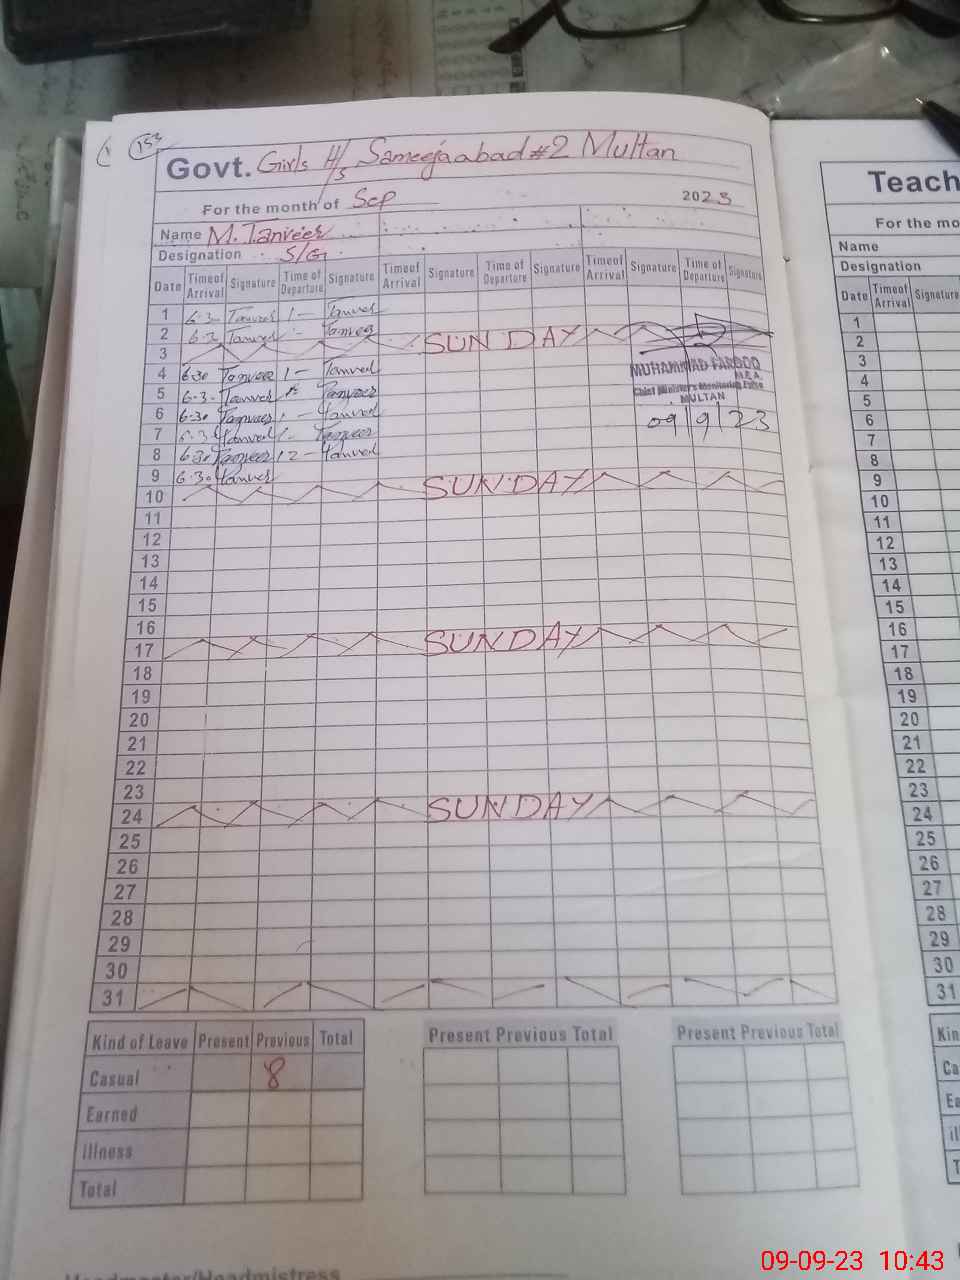 153
Govt. Girls H/S Sameejaabad #2 Multan
For the month of Sep 2023
Name M. Tanveer
Designation S/G
Date Timeof Arrival Signature Time of Departure Signature Timeof Arrival Signature Time of Departure Signature Timeof Arrival Signature Time of Departure Signature
1 6.3- Tanveer 1- Tanveer
2 6.3 Tanveer - Tanveer
3 SUNDAY
4 6.30 Tanveer 1- Tanveer
5 6.3- Tanveer Tanveer
6 6.30 Tanveer 1- Tanveer
7 6.3 Tanveer 1- Tanveer
8 6.30 Tanveer 12- Tanveer
9 6.30 Tanveer
10 SUNDAY
MUHAMMAD FAROOQ
M.E.A.
Chief Minister's Monitoring Force
MULTAN
09/9/23
11
12
13
14
15
16
17 SUNDAY
18
19
20
21
22
23
24 SUNDAY
25
26
27
28
29
30
31
Kind of Leave Present Previous Total
Casual 8
Earned
illness
Total
Present Previous Total
Present Previous Total
Headmaster/Headmistress
Teach
For the mo
Name
Designation
Date Timeof Arrival Signature
1
2
3
4
5
6
7
8
9
10
11
12
13
14
15
16
17
18
19
20
21
22
23
24
25
26
27
28
29
30
31
Kin
Ca
Ea
il
T
09-09-23 10:43